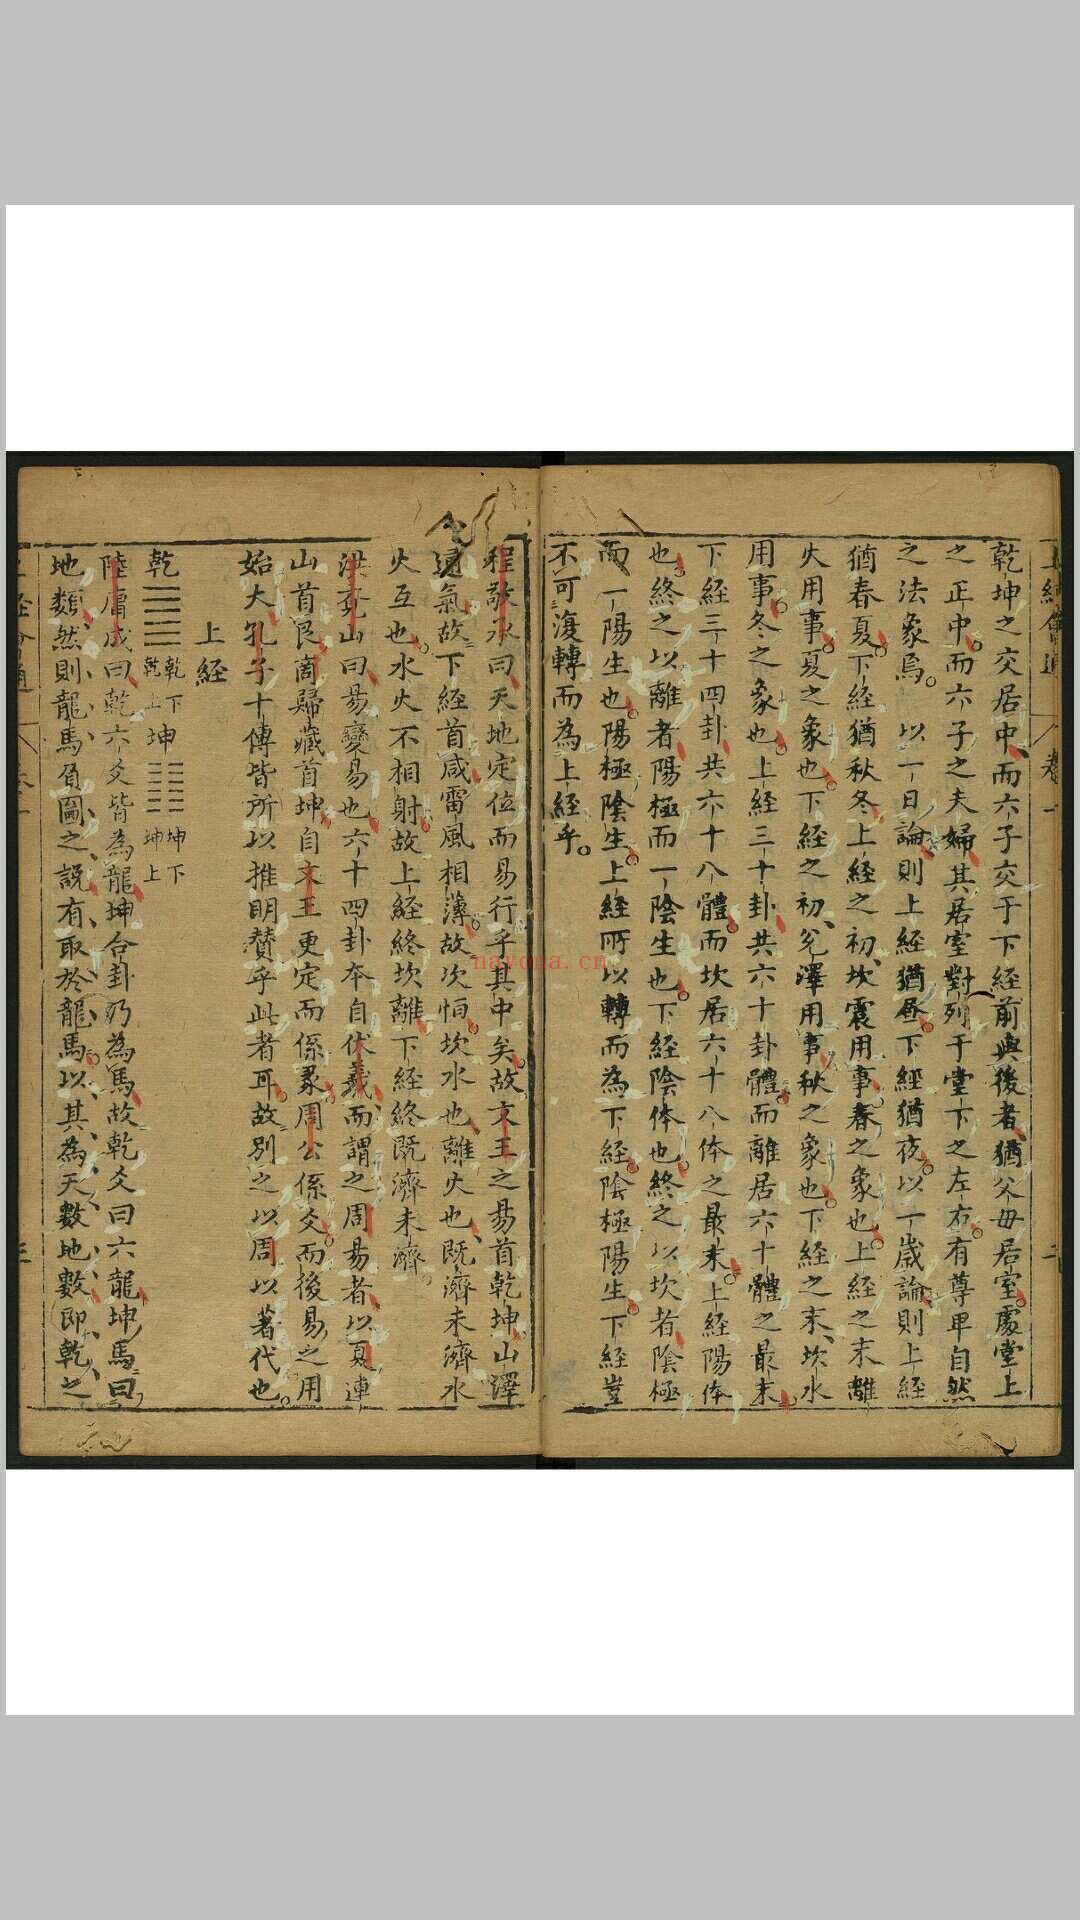 乾坤之交居中而六子交于下經前與後者猶父母居室處堂上
之正中而六子之夫婦其居室對列于堂下之左右有尊卑自然
之法象焉。以一日論則上經猶昼下經猶夜以一歲論則上經
猶春夏下經猶秋冬上經之初坎震用事春之象也上經之末離
火用事夏之象也下經之初兌澤用事秋之象也下經之末坎水
用事冬之象也上經三十卦共六十卦體而離居六十體之最末
下經三十四卦共六十八體而坎居六十八体之最末上經陽体
也終之以離者陽極而一陰生也下經陰体也終之以坎者陰極
而一陽生也陽極陰生上經所以轉而為下經陰極陽生下經豈
不可復轉而為上經乎
程敬承曰天地定位而易行乎其中矣故文王之易首乾坤山澤
通氣故下經首咸雷風相薄故次恒坎水也離火也既濟未濟水
火互也水火不相射故上經終坎離下經終既濟未濟
洪亮山曰易變易也六十四卦本自伏羲而謂之周易者以夏連
山首艮商歸藏首坤自文王更定而係彖周公係爻而後易之用
始大孔子十傳皆所以推明贊乎此者耳故別之以周以著代也
上經
乾 乾下 乾上 坤 坤下 坤上
陸庸成曰乾六爻皆為龍坤合卦乃為馬故乾爻曰六龍坤馬曰
地類然則龍馬負圖之說有取於龍馬以其為天數地數即乾之
nayona.cn